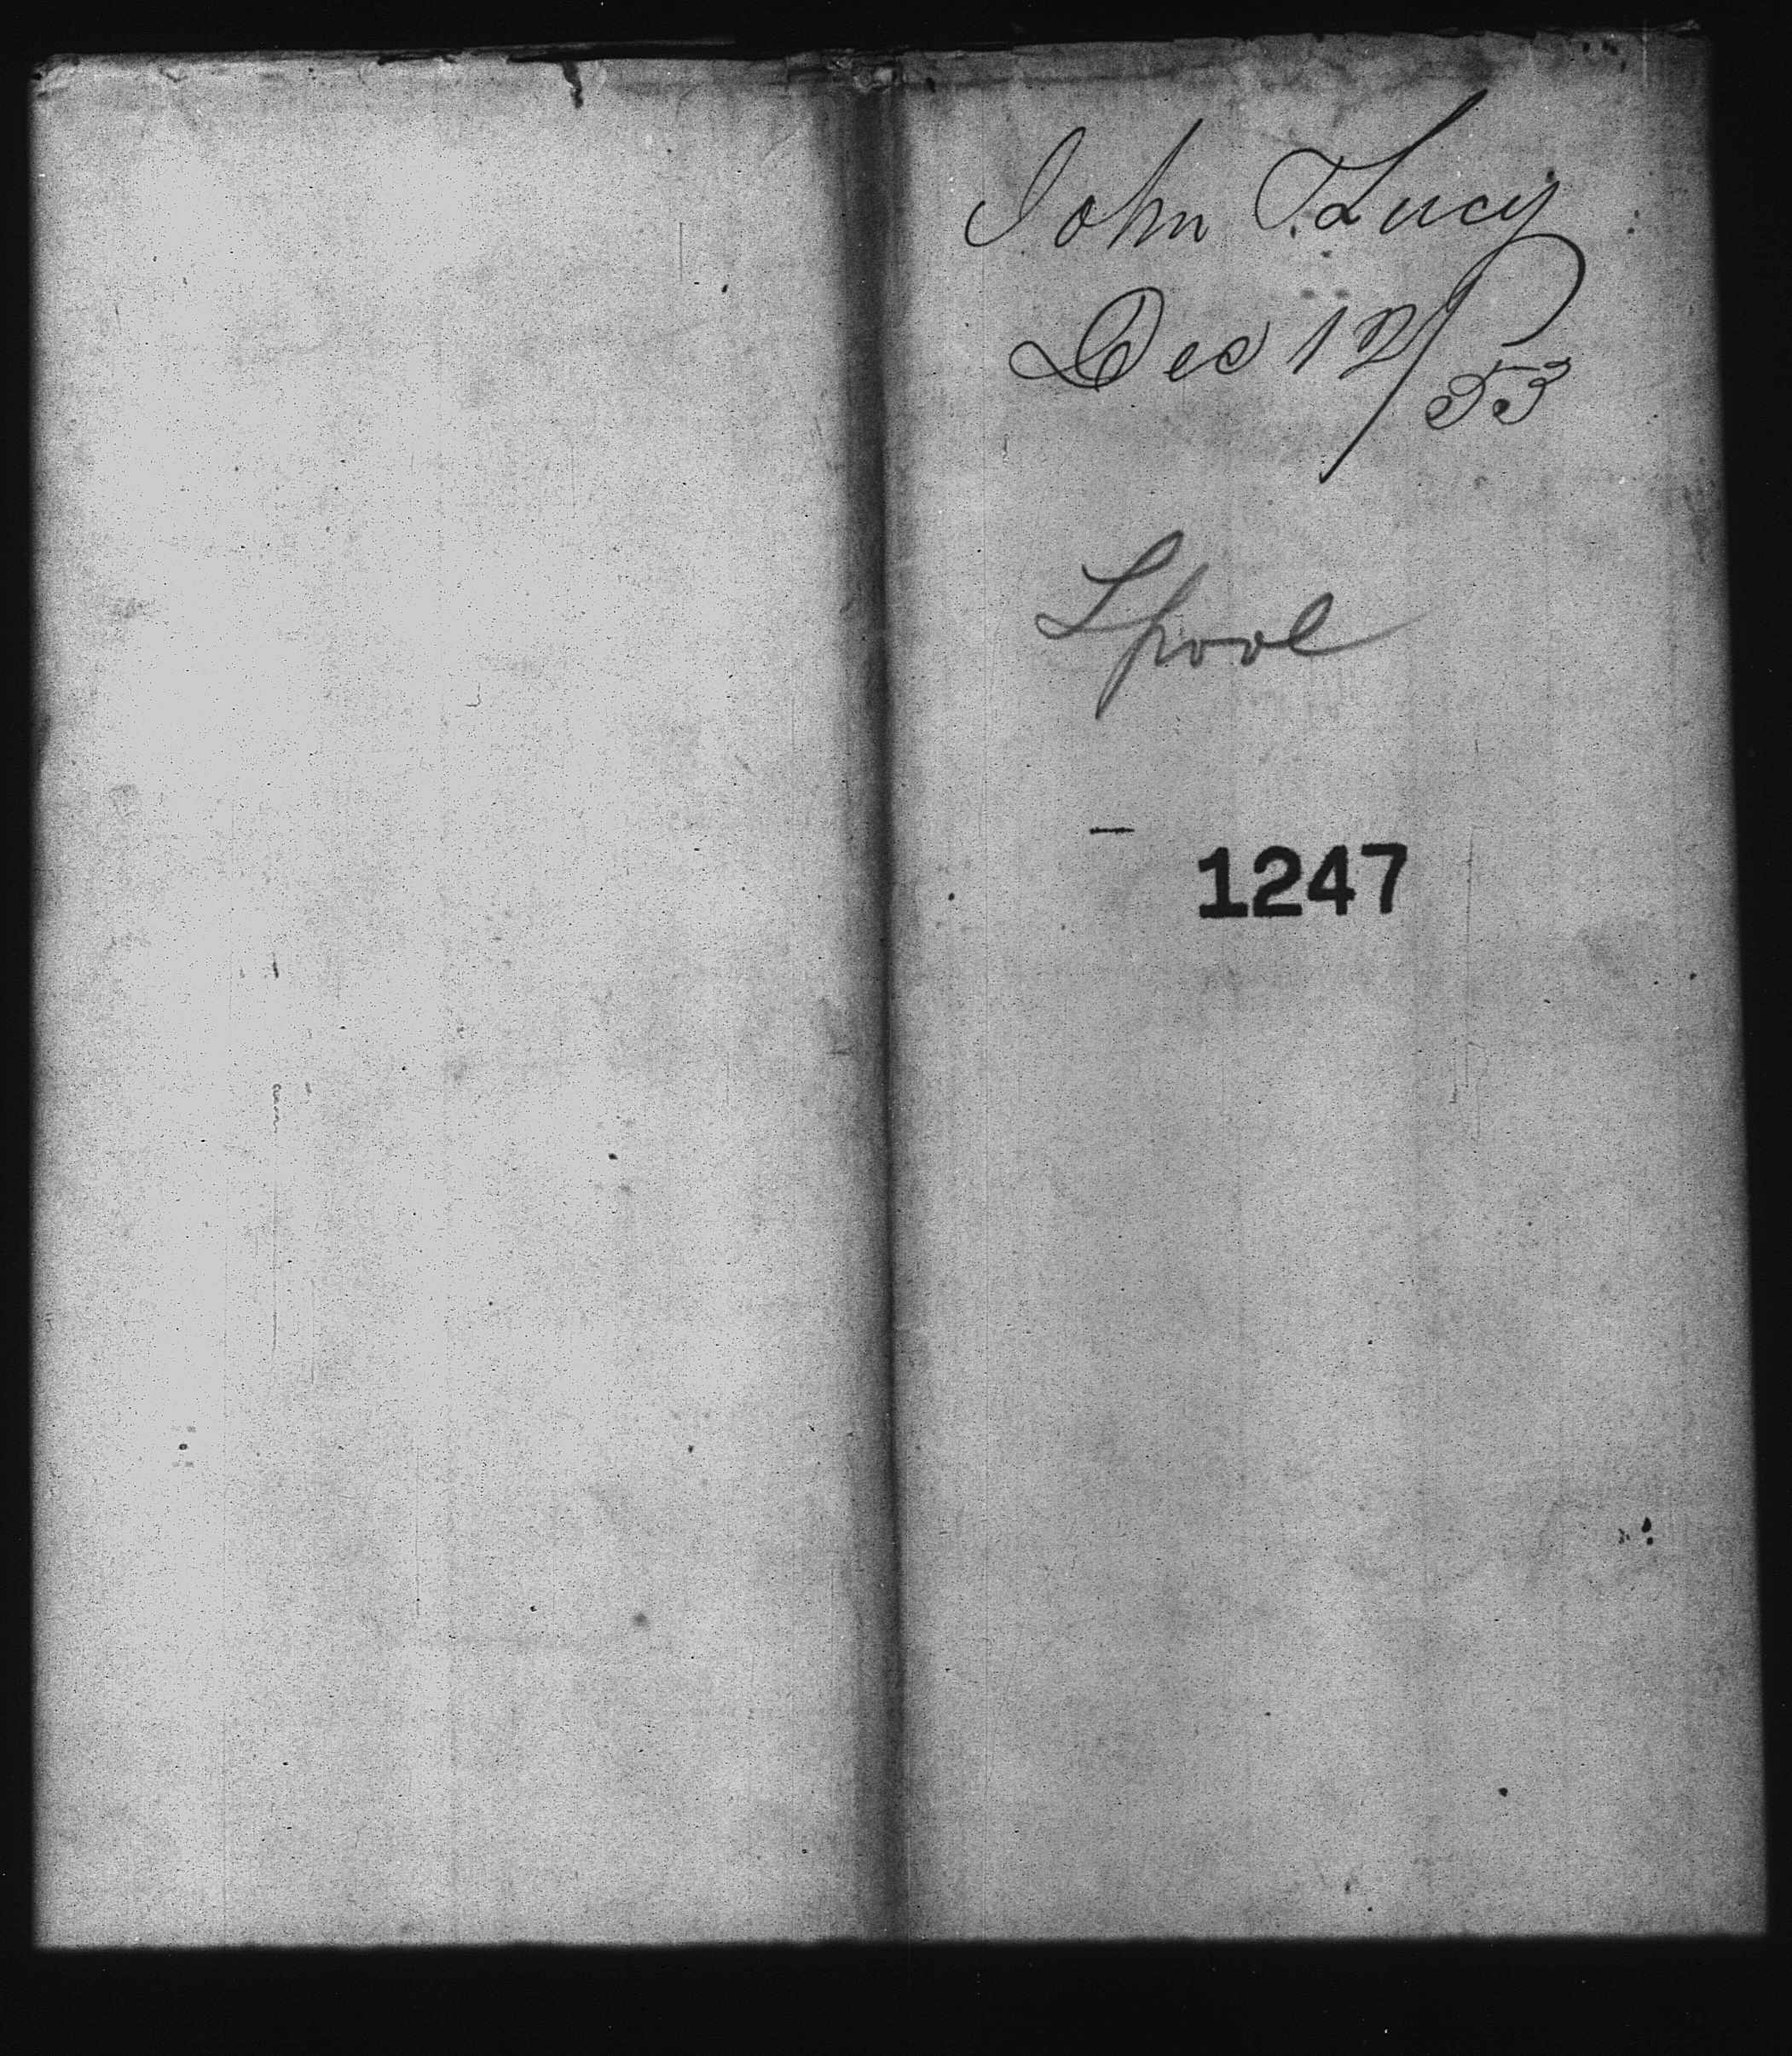 John T. Lucy
Dec 12/53
Lpool
1247